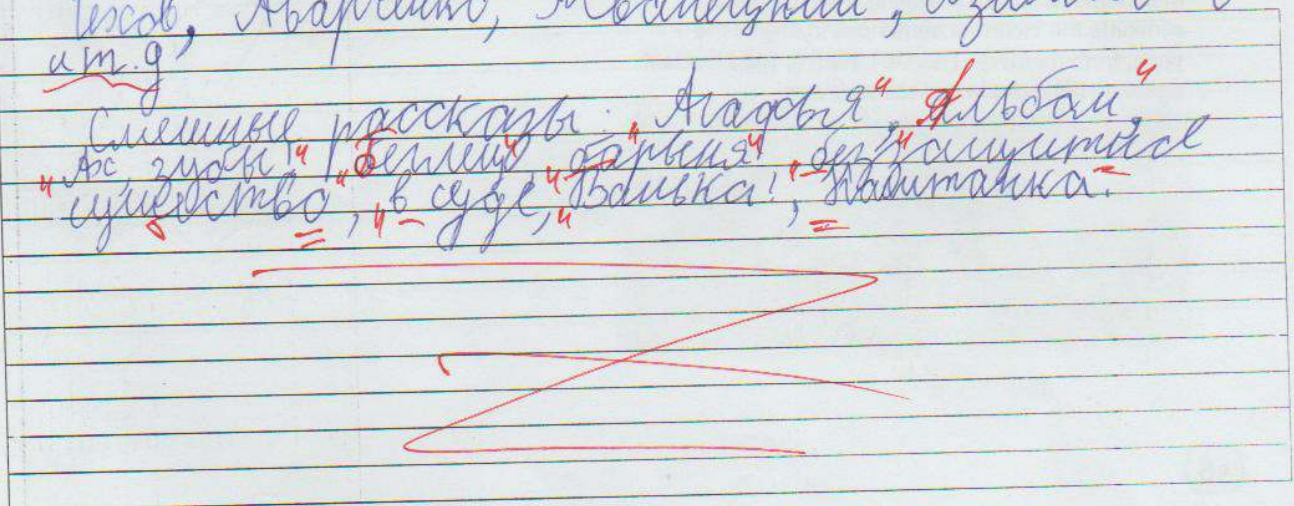 Чехов, Аварченко, Жванецкий,
и т.д
Смешные рассказы: „Агафья“, Альбом“,
„Ах, зубы!“, „беглец“, „барыня“, „беззащитное
существо, „в суде, „Ванька!,